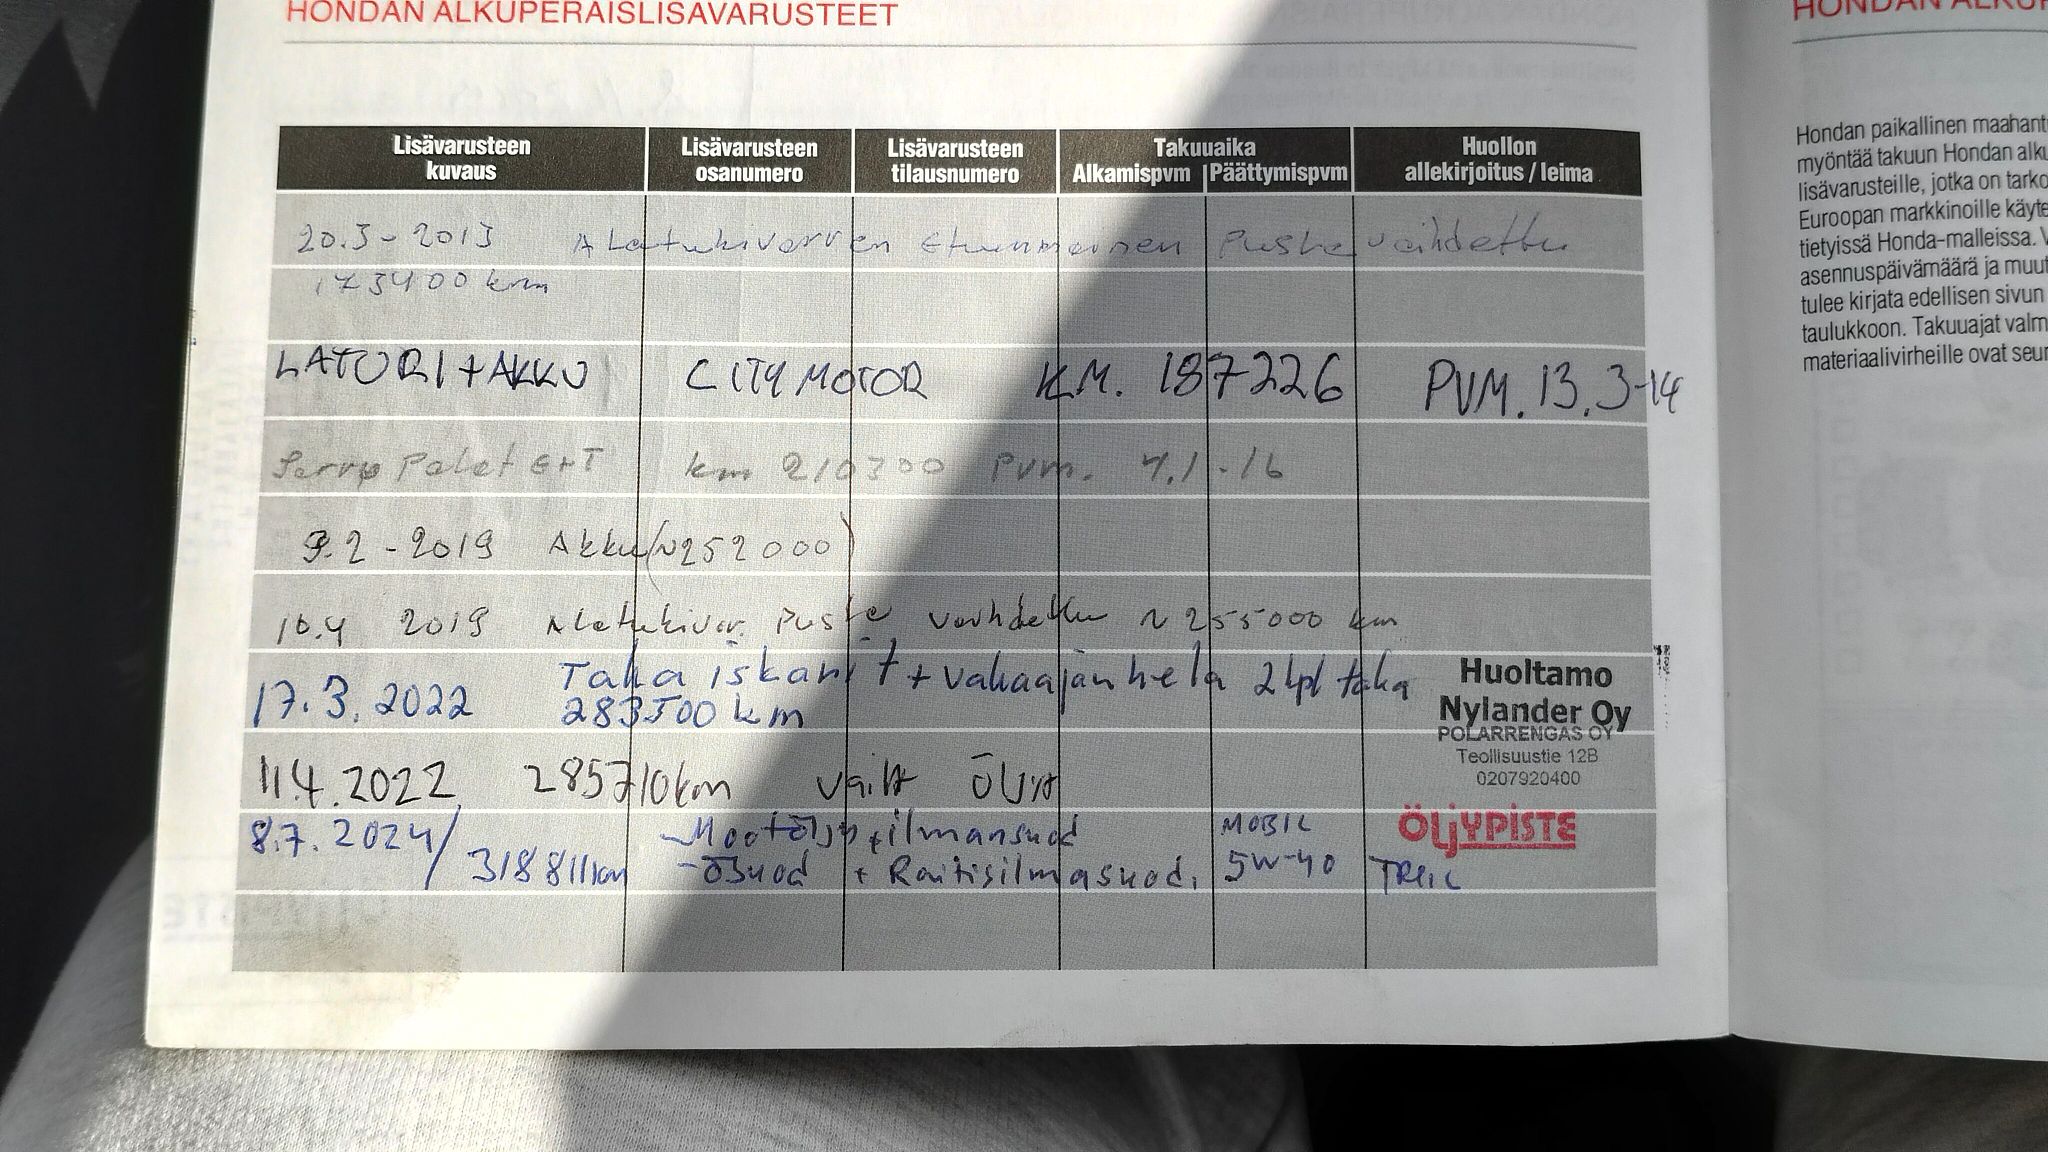 HONDAN ALKUPERÄISLISÄVARUSTEET
Lisävarusteen kuvaus
Lisävarusteen osanumero
Lisävarusteen tilausnumero
Takuuaika
Alkamispvm
Päättymispvm
Huollon allekirjoitus / leima
20.3-2013 Alatukivarren Etummainen Pusla vaihdettu
173400 km
LATURI + AKKU CITYMOTOR KM. 187226 PVM. 13.3-14
Jarru Palat E+T km 210300 Pvm. 4.1-16
9.2-2019 Akku (~252000)
10.4 2019 Alatukivar. Pusla vaihdettu ~255000 km
17.3.2022 Taka iskarit + vakaajan hela 2kpl taka
283500 km
Huoltamo
Nylander Oy
POLARRENGAS OY
Teollisuustie 12B
0207920400
11.4.2022 285710km vaiht ÖLJYT
8.7.2024/ - Mootöljy + ilmansuod MOBIL
ÖLJYPISTE
318811km - ösuod + Raitisilmasuod. 5W-40 TREIL
Hondan paikallinen
myöntää takuun Hondan
lisävarusteille, jotka on
Euroopan markkinoille
tietyissä Honda-malleissa.
asennuspäivämäärä ja
tulee kirjata edellisen sivun
taulukkoon. Takuuajat
materiaalivirheille ovat